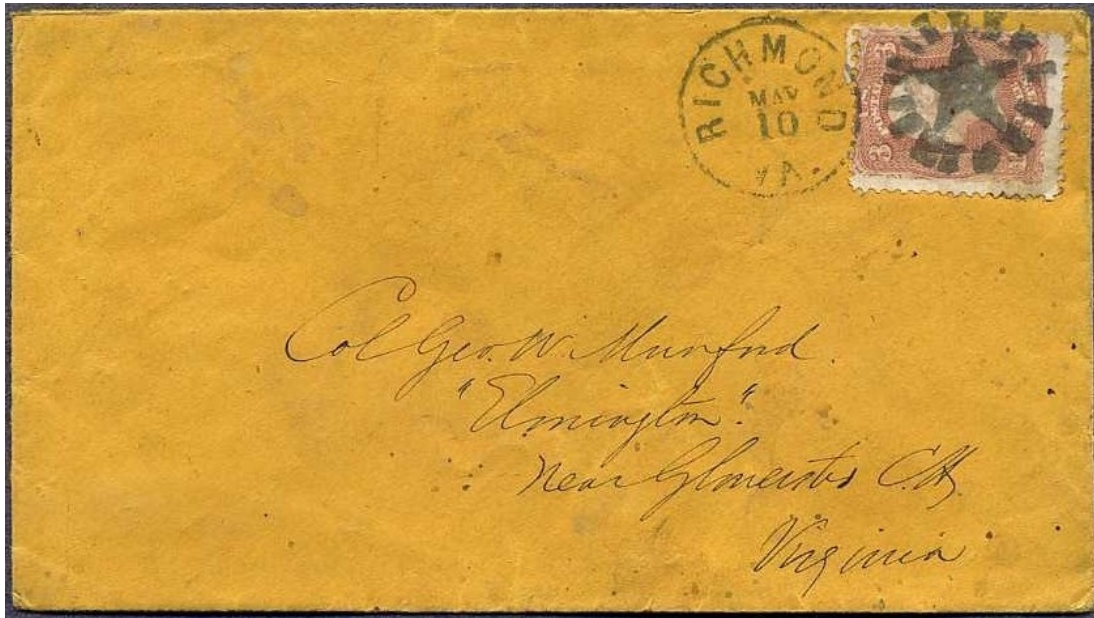 RICHMOND
MAY
10
VA.
3
3
Col Geo. W. Munford.
"Elmington".
Near Gloucester C.H.
Virginia